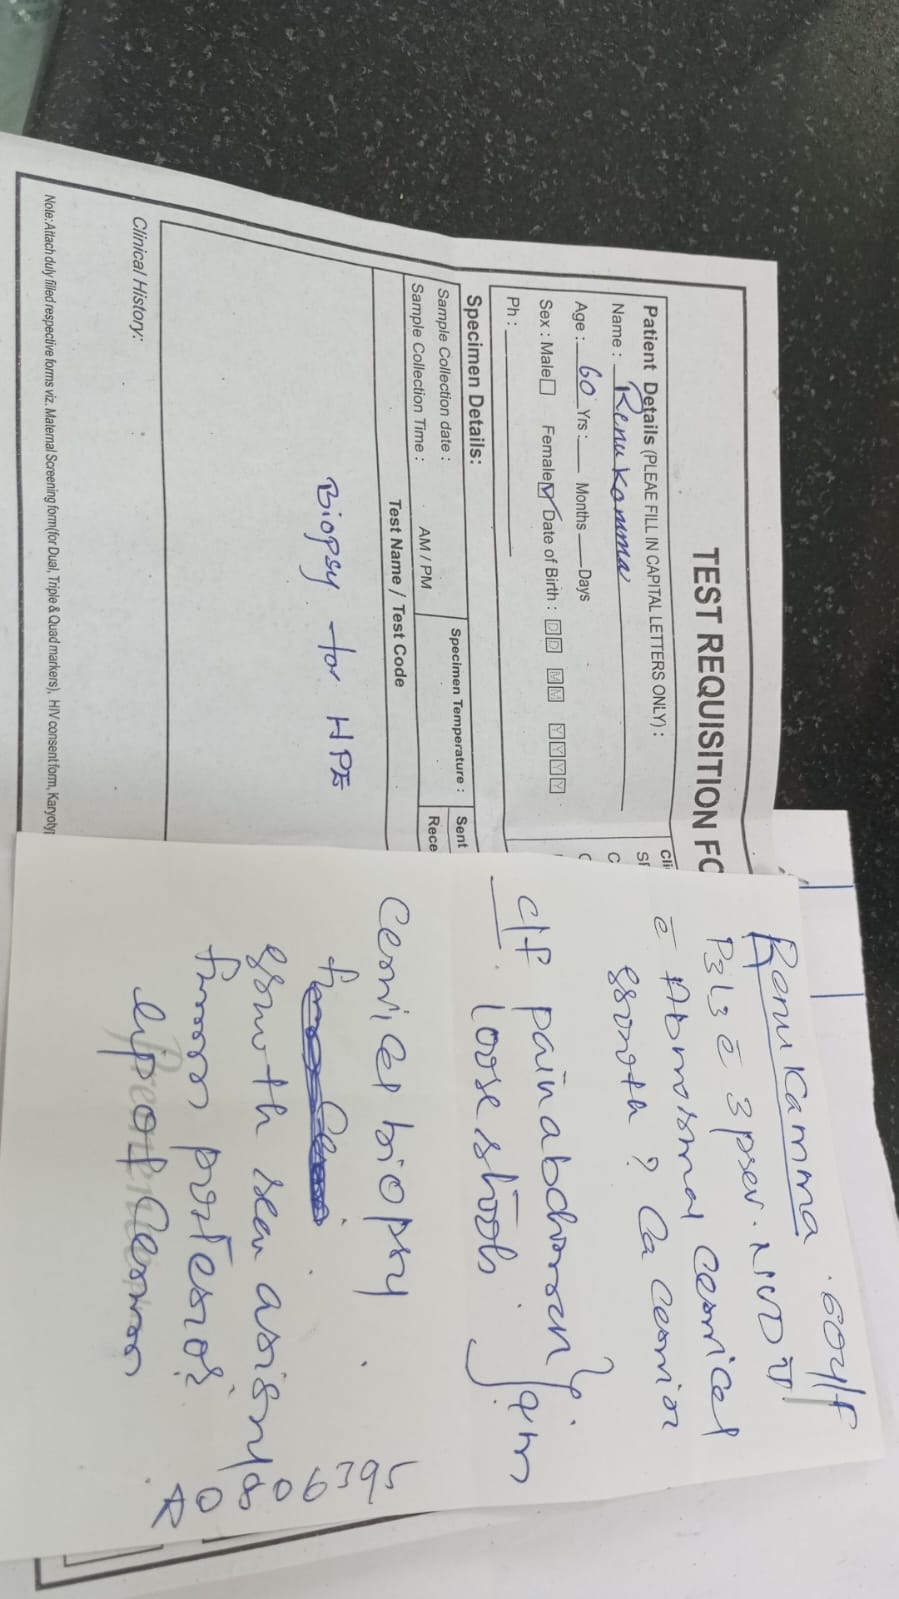 TEST REQUISITION FO
Patient Details (PLEAE FILL IN CAPITAL LETTERS ONLY) :
Name : Renukamma
Age : 60 Yrs : Months Days
Sex : Male Female Date of Birth : DD MM YYYY
Ph :
Specimen Details:
Sample Collection date :
Sample Collection Time : AM / PM
Specimen Temperature :
Sent
Rece
Test Name / Test Code
Biopsy for HPE
Clinical History:
Note:Attach duly filled respective forms viz. Maternal Screening form(for Dual, Triple & Quad markers), HIV consent form, Karyoty
Renukamma . 60y/F
P3L3 c̄ 3 prev. NVD
c̄ Abnormal Cervical
growth ? Ca Cervix
c/f pain abdomen
loose stools.
Cervical biopsy
growth seen arising
from posterior
lip of Cervix